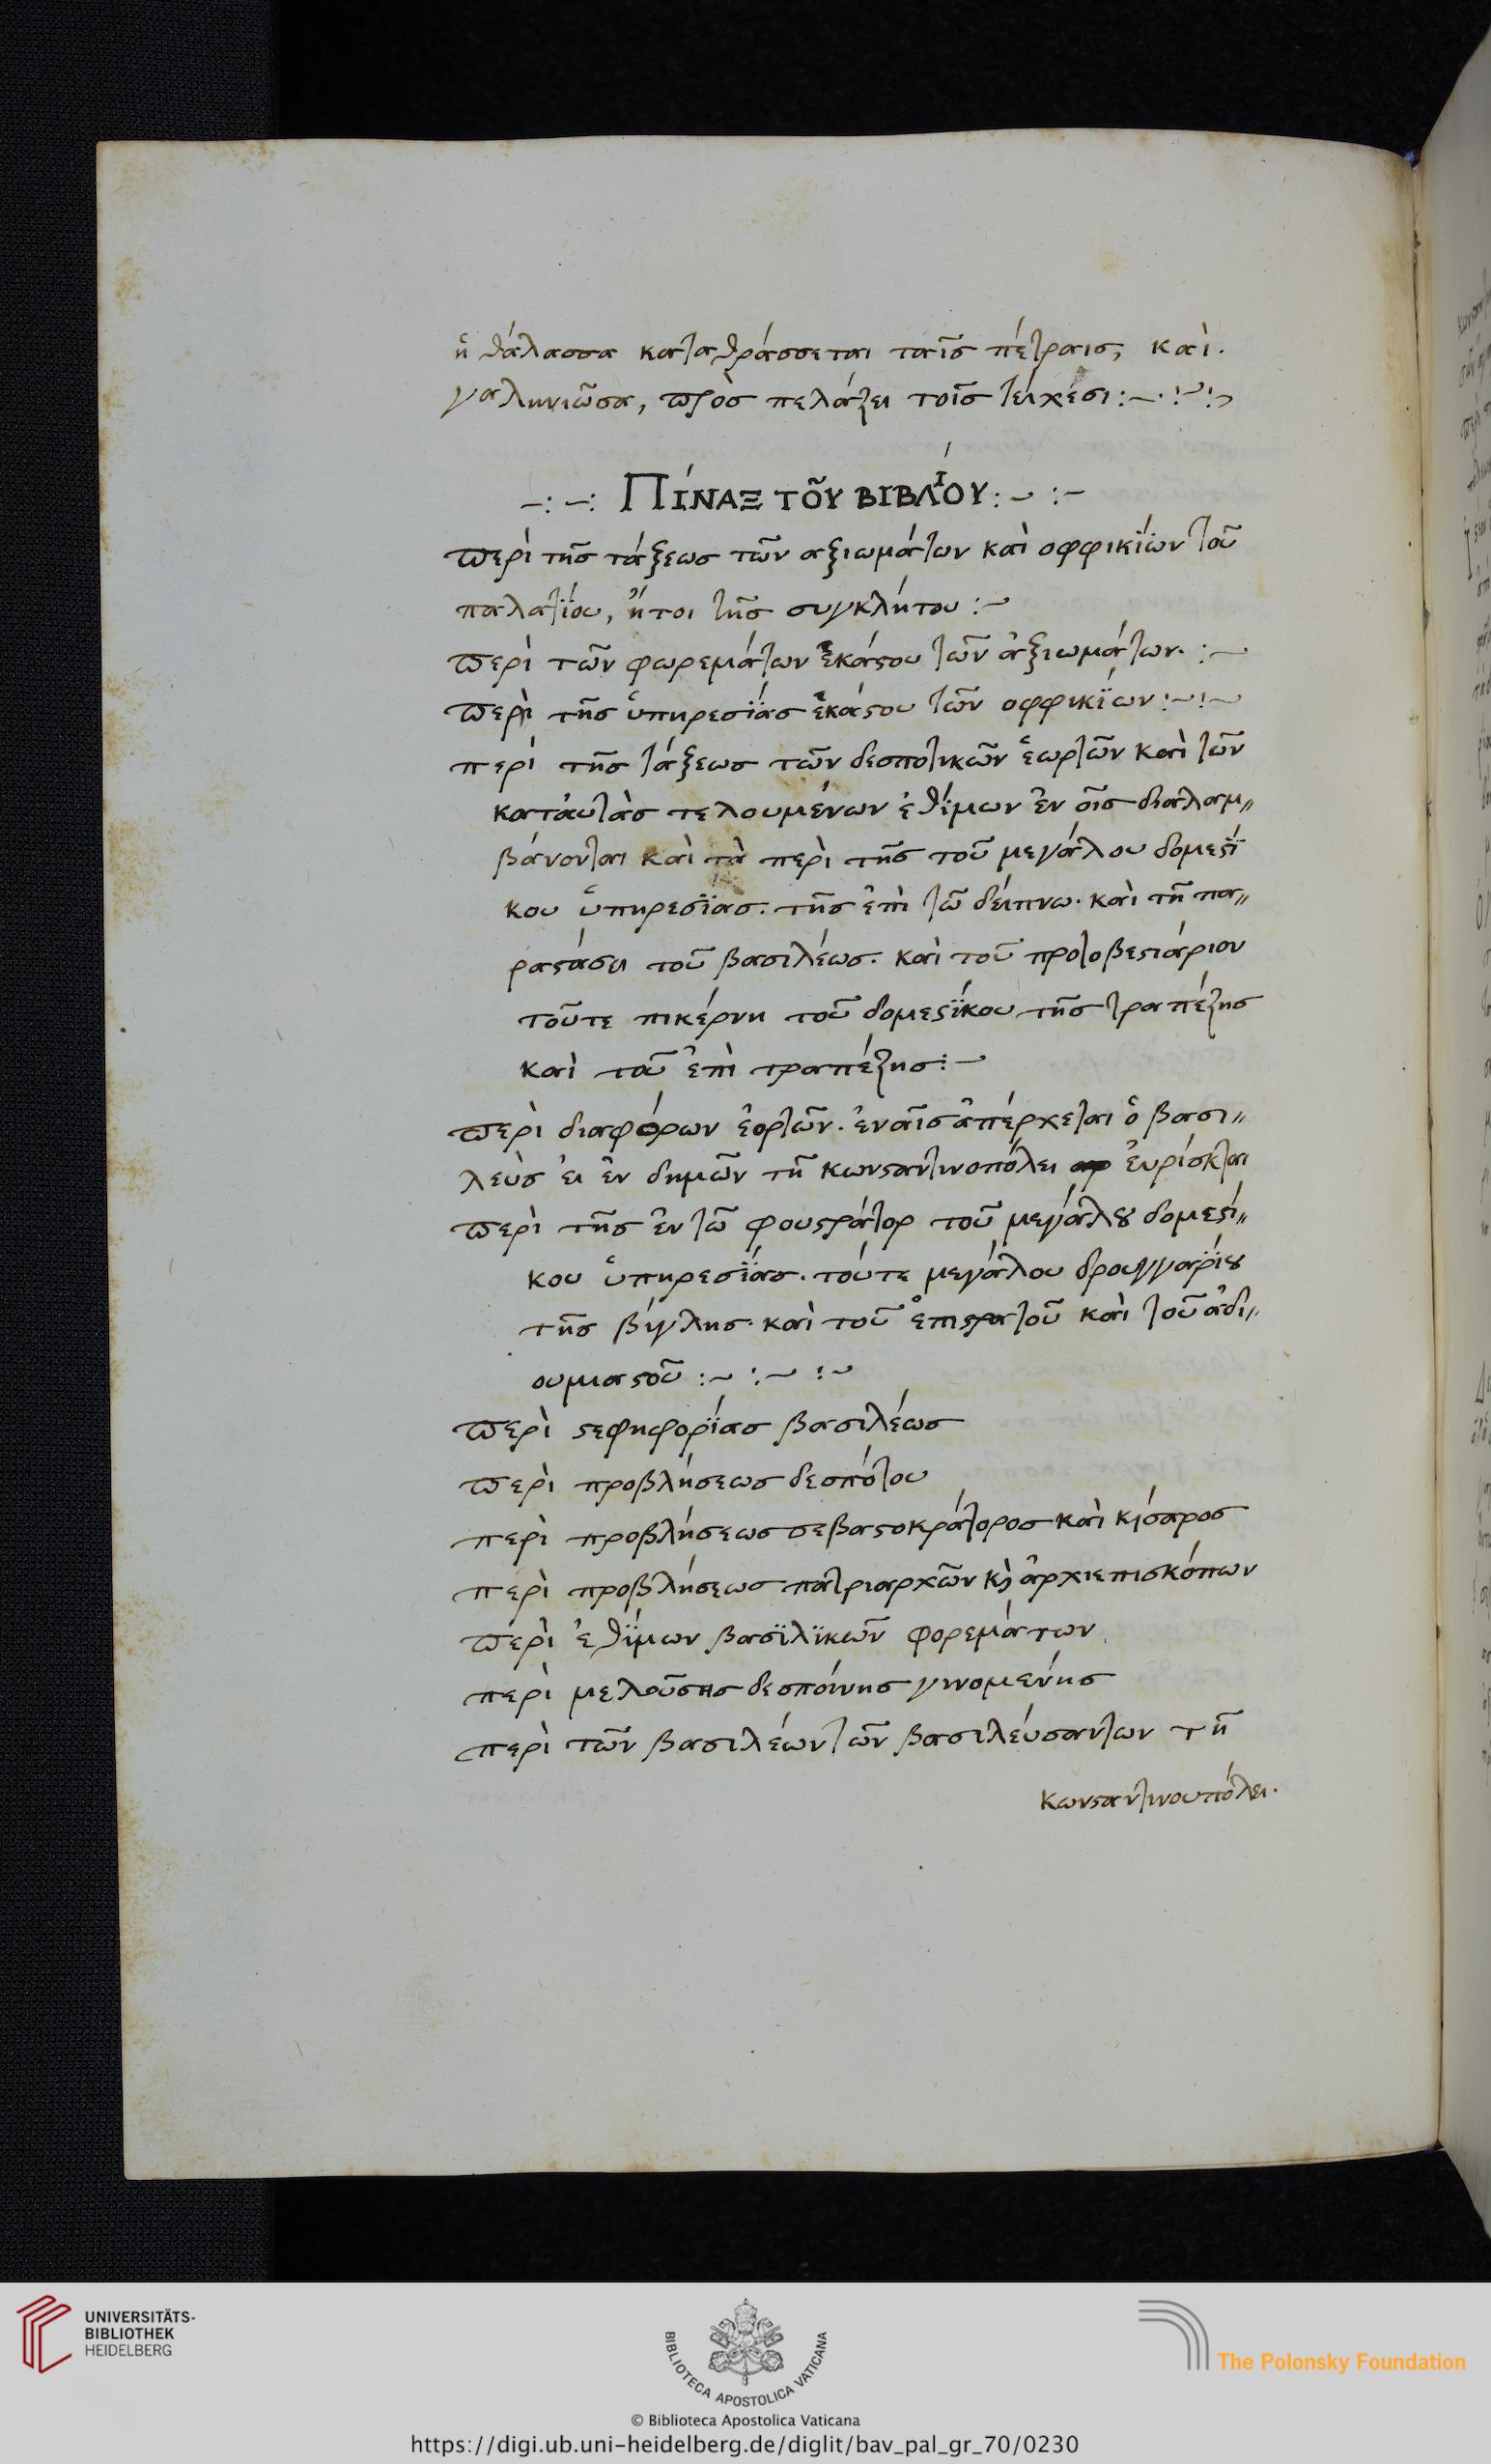 ἡ θάλασσα καταθράσσεται ταῖς πέτραις, καὶ.
γαληνιῶσα, πρὸς πελάζει τοῖς τείχεσι:~·:~:
–:–: ΠΊΝΑΞ ΤΟ͂Υ ΒΙΒΛΊΟΥ:~ :–
περὶ τῆς τάξεως τῶν αξιωμάτων καὶ οφφικΐων τοῦ
παλατΐου, ἤτοι τῆς συγκλήτου :~
περὶ τῶν φωρεμάτων ἑκάστου τῶν ἀξιωμάτων· :~
περὶ τῆς ὑπηρεσΐας ἑκάστου τῶν οφφικΐων:~:~
περὶ τῆς τάξεως τῶν δεσποτικῶν ἑωρτῶν καὶ τῶν
κατἀυτὰς τελουμένων ἐθΐμων ἐν οἷς διαλαμ〃
βάνονται καὶ τὰ περὶ τῆς τοῦ μεγάλου δομεστΐ
κου ὑπηρεσΐας. τῆς ἐπὶ τῶ δείπνω· καὶ τῆ πα〃
ραστάσει τοῦ βασιλέως. καὶ τοῦ προτοβεστιάριου
τοῦτε πικέρνη τοῦ δομεστΐκου τῆς τραπέζης
καὶ τοῦ ἐπὶ τραπέζης:~
περὶ διαφόρων ἑορτῶν. ἐναῖς ἀπέρχεται ὁ βασι〃
λεὺς ἐι ἐν δημῶν τῆ κωνσταντινοπόλει ἑυρίσκεται
περὶ τῆς ἐν τῶ φουστράτορ τοῦ μεγάλου δομεστί〃
κου ὑπηρεσΐας. τούτε μεγάλου δρουγγαρΐου
τῆς βίγλης. καὶ τοῦ ἐπιστρατοῦ καὶ τοῦ ἀδι〃
ουμιαστοῦ :~ :~ :~
περὶ στεφηφορΐας βασιλέως
περὶ προβλήσεως δεσπότου
περὶ προβλήσεως σεβαστοκράτορος καὶ κέσαρος
περὶ προβλήσεως πατριαρχῶν κὶ ἀρχιεπισκόπων
περὶ ἐθΐμων βασϊλϊκῶν φορεμάτων
περὶ μελούσης δεσποίνης γινομένης
περὶ τῶν βασιλέων τῶν βασιλέυσαντων τῆ
κωνσταντινουπόλει.
UNIVERSITÄTS-
BIBLIOTHEK
HEIDELBERG
BIBLIOTECA APOSTOLICA VATICANA
The Polonsky Foundation
© Biblioteca Apostolica Vaticana
https://digi.ub.uni-heidelberg.de/diglit/bav_pal_gr_70/0230